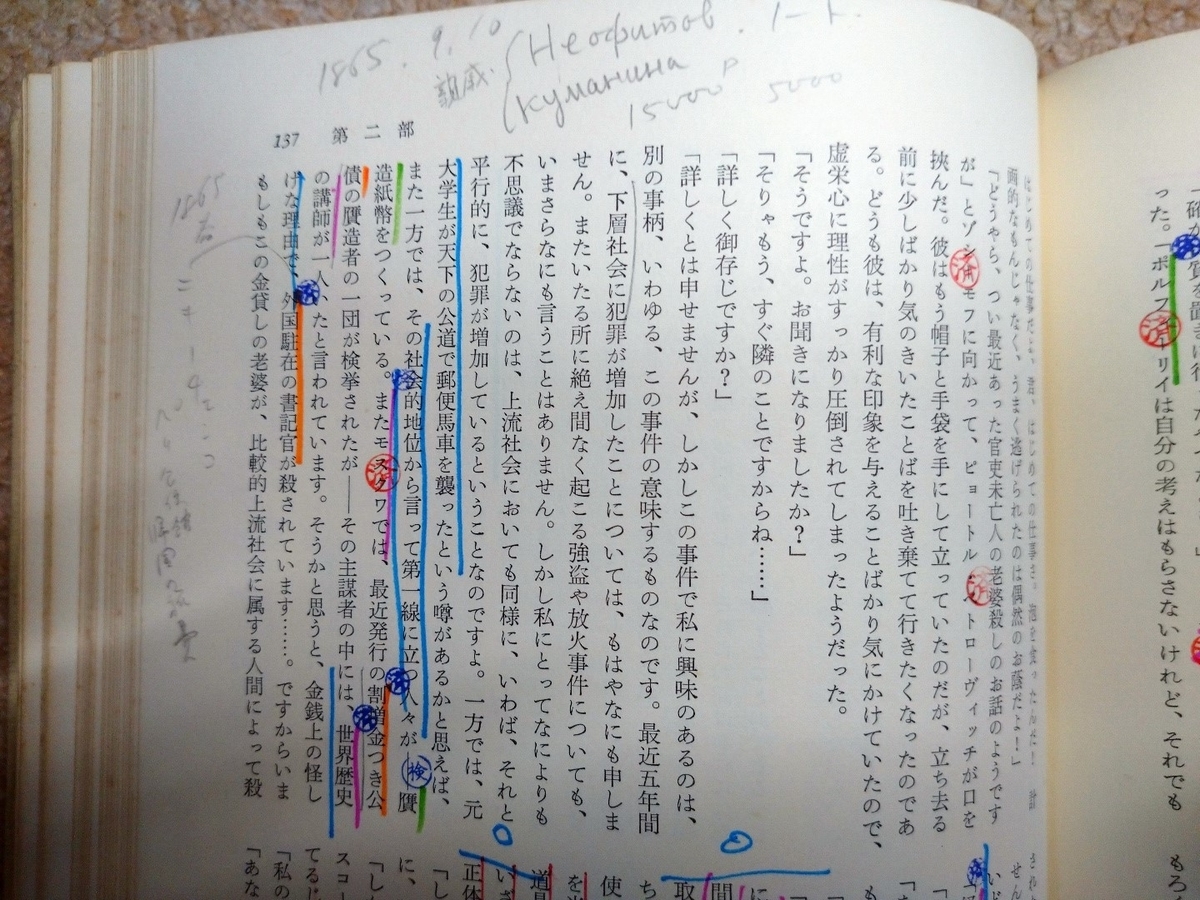 1865. 9. 10
親戚.
Неофитов. 1-ト.
Куманина
15000 р 5000
137 第二部
「どうやら、つい最近あった官吏未亡人の老婆殺しのお話のようです
が」とゾシーモフに向かって、ピョートル・ペトローヴィッチが口を
挾んだ。彼はもう帽子と手袋を手にして立っていたのだが、立ち去る
前に少しばかり気のきいたことばを吐き棄てて行きたくなったのであ
る。どうも彼は、有利な印象を与えることばかり気にかけていたので、
虚栄心に理性がすっかり圧倒されてしまったようだった。
「そうですよ。お聞きになりましたか?」
「そりゃもう、すぐ隣のことですからね……」
「詳しく御存じですか?」
「詳しくとは申せませんが、しかしこの事件で私に興味のあるのは、
別の事柄、いわゆる、この事件の意味するものなのです。最近五年間
に、下層社会に犯罪が増加したことについては、もはやなにも申しま
せん。またいたる所に絶え間なく起こる強盗や放火事件についても、
いまさらなにも言うことはありません。しかし私にとってなによりも
不思議でならないのは、上流社会においても同様に、いわば、それと
平行的に、犯罪が増加しているということなのですよ。一方では、元
大学生が天下の公道で郵便馬車を襲ったという噂があるかと思えば、
また一方では、その社会的地位から言って第一線に立つ人々が贋
造紙幣をつくっている。またモスクワでは、最近発行の割増金つき公
債の贋造者の一団が検挙されたが――その主謀者の中には、世界歴史
の講師が一人いたと言われています。そうかと思うと、金銭上の怪し
げな理由で、外国駐在の書記官が殺されています……。ですからいま
もしもこの金貸しの老婆が、比較的上流社会に属する人間によって殺
1865
検
った。「ポルフィーリイは自分の考えはもらさないけれど、それでも